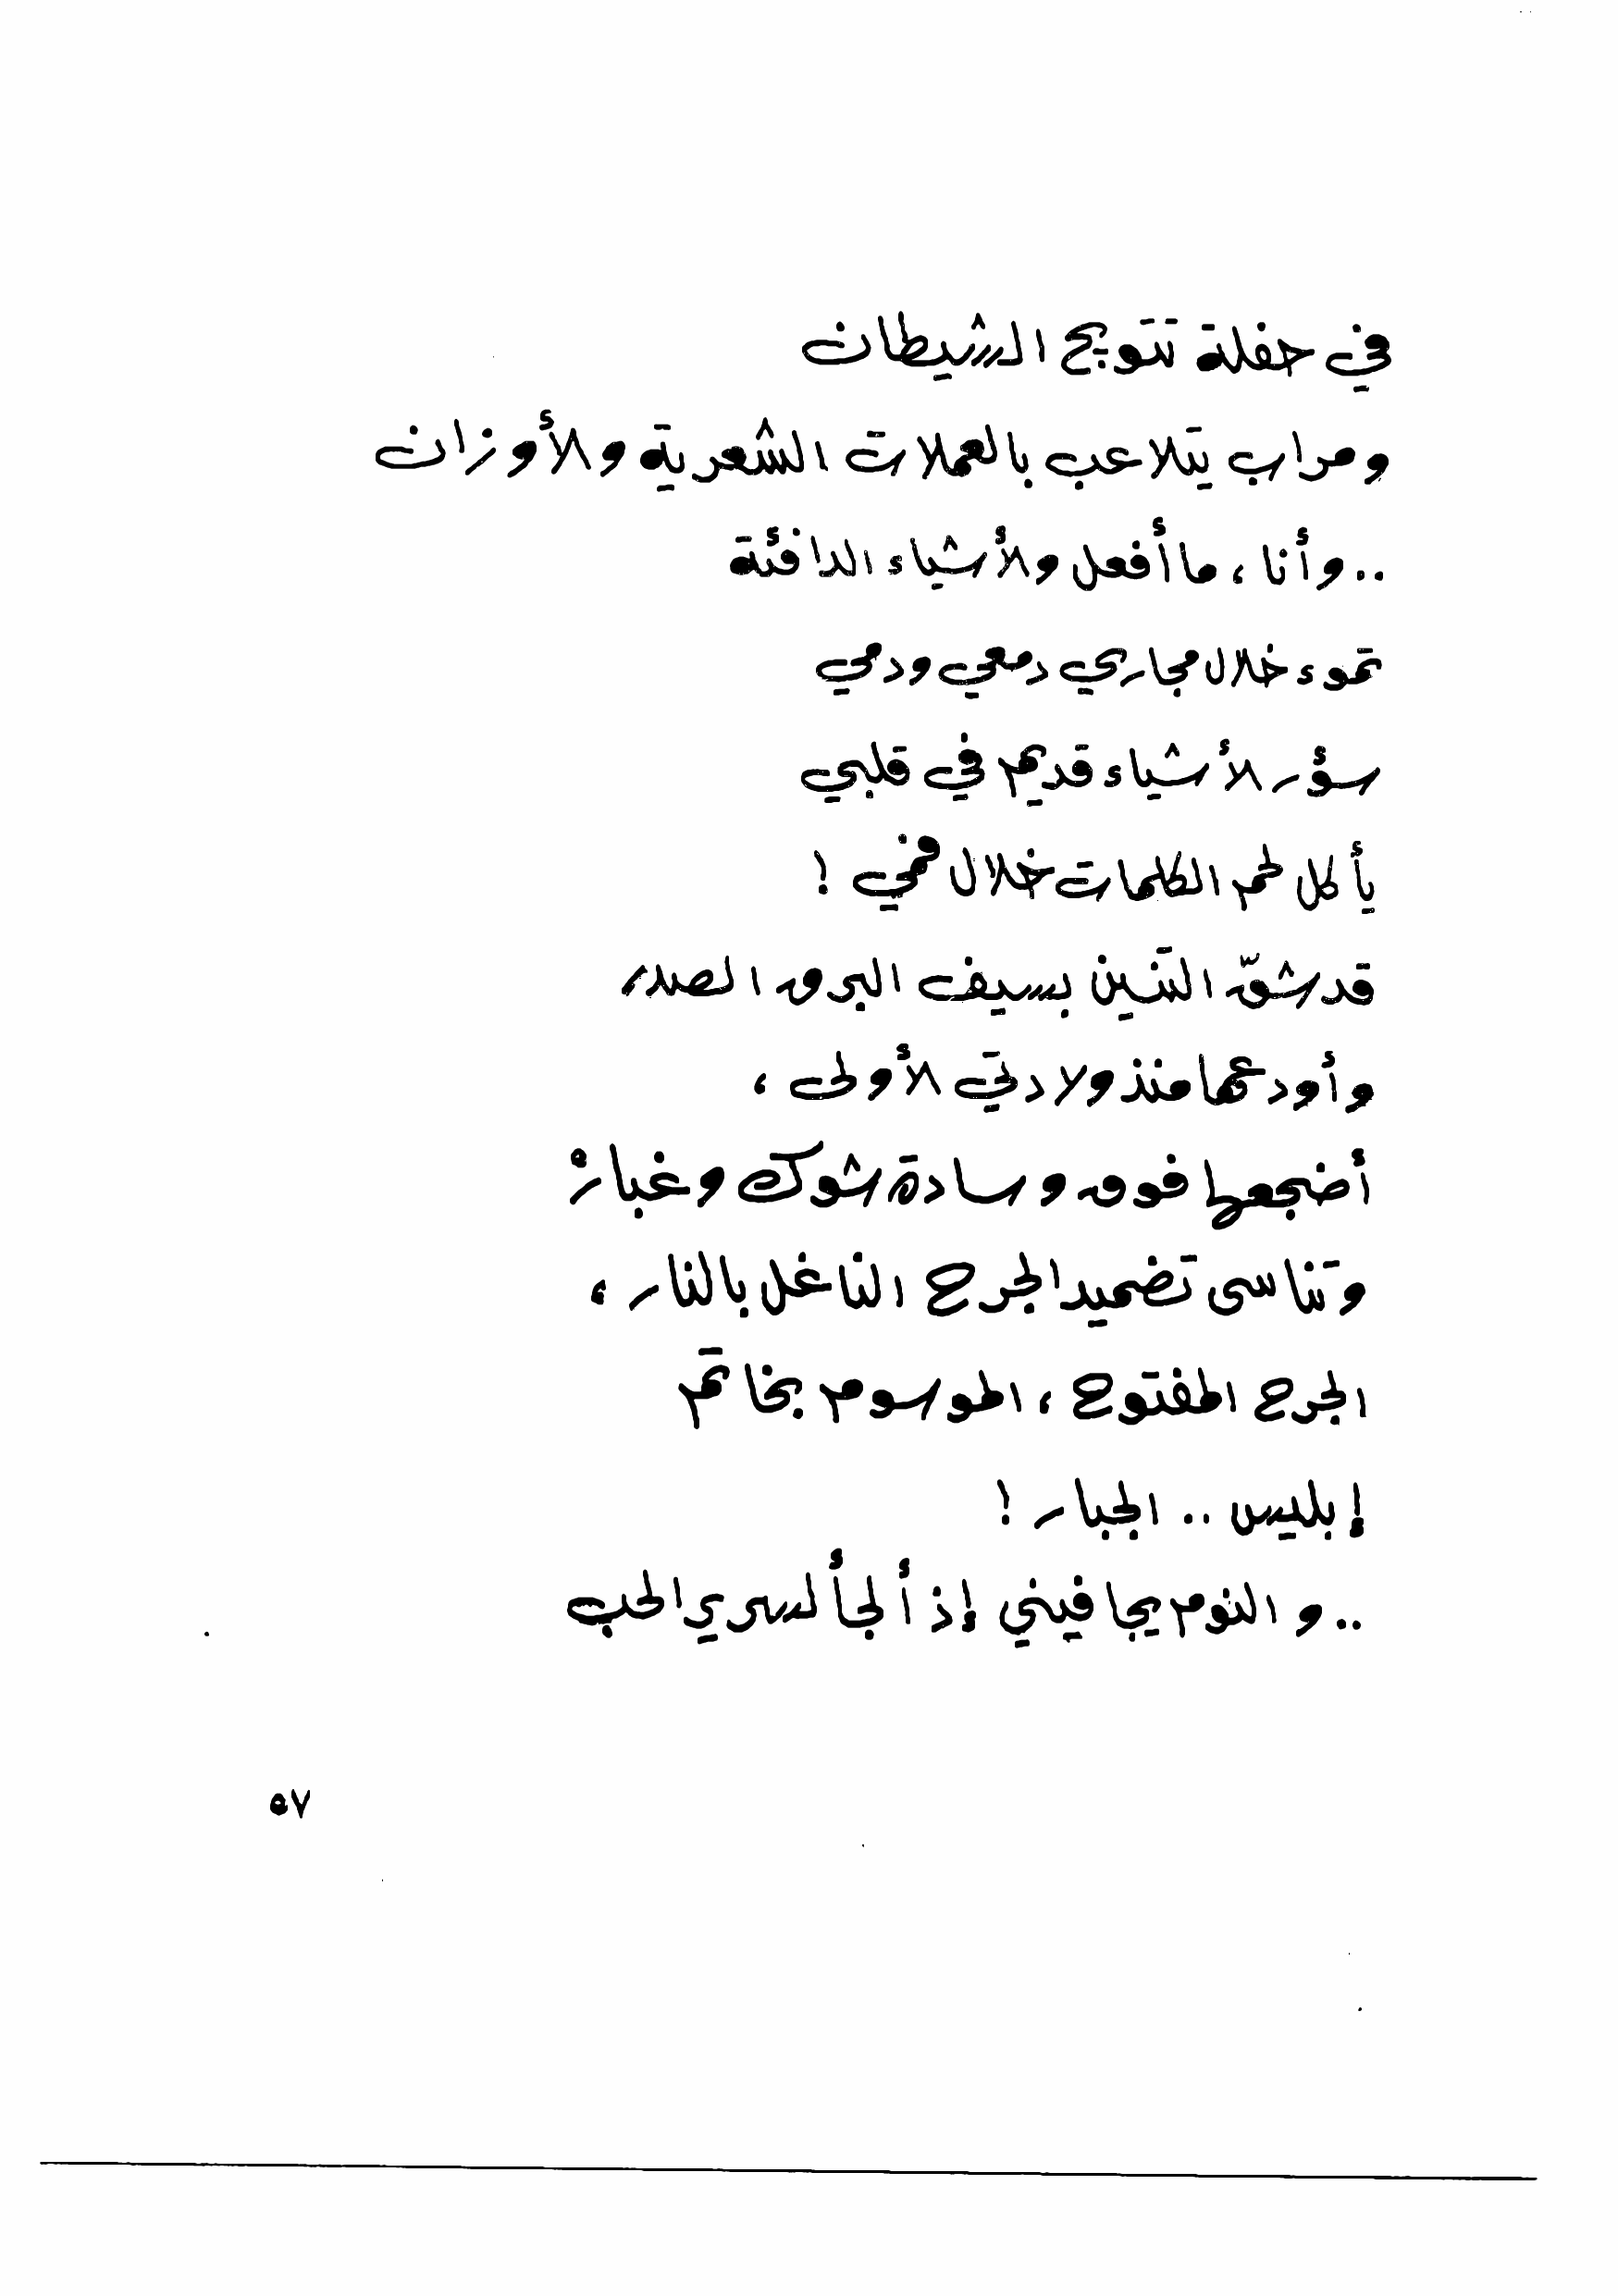 في حفلة تتويج الشيطان
ومراب يتلاعب بالعملات الشعرية والأوزان
..وأنا ، ما أفعل والأشياء الدافئة
تموء خلال مجاري دمعي ودمي
سؤر لأشياء قديم في قلبي
يأكل لحم الكلمات خلال فمي !
قد شقّ التنين بسيف البرق الصدر
وأودعها منذ ولادتي الأولى ،
أضجعها فوق وسادة شوك وغبارْ
وتناسى تضميد الجرح الناغل بالنار ،
الجرح المفتوح ، الموسوم بخاتم
إبليس .. الجبار !
..و النوم يجافيني إذ ألجأ لسرير الحب
٥٧